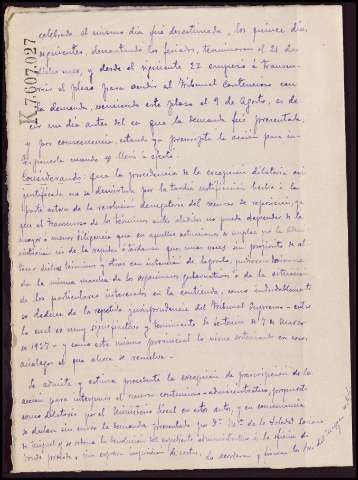 K7,607,027
celebrado el mismo día fué desestimada, los quince días
siguientes, descontando los feriados, terminaron el 21 de
dicho mes, y desde el siguiente 22 empezó á transcu-
rrir el plazo para acudir al Tribunal Contencioso con
la demanda, venciendo este plazo el 9 de Agosto, es de-
cir un día antes del en que la demanda fué presentada,
y por consecuencia, estando ya prescripta la acción para in-
terponerla cuando se llevó a efecto.
Considerando: que la procedencia de la excepción dilatoria así
justificada no se desvirtúa por la tardía notificación hecha á la
parte actora de la resolución denegatoria del recurso de reposición, ya
que el transcurso de los términos no puede depender de la
mayor o menor diligencia que en aquellas actuaciones se emplee por la Admi-
nistración
de la misma marcha de los organismos gubernativos o de la actuación
de los particulares interesados en la contienda, como indudablemente
se deduce de la repetida jurisprudencia del Tribunal Supremo - entre
la cual es muy significativa y terminante la sentencia de 7 de Marzo
de 1927 - y como este mismo provincial lo viene estimando en casos
análogos al que ahora se resuelve.
Se admite y estima procedente la excepción de prescripción de la
acción para interponer el recurso contencioso-administrativo, propuesta
como dilatoria por el Ministerio fiscal en estos autos, y en consecuencia
se declara sin curso la demanda presentada por Dª Mª de la Soledad
y se ordena la devolución del expediente administrativo á la oficina de
donde procede, sin expresa imposición de costas.